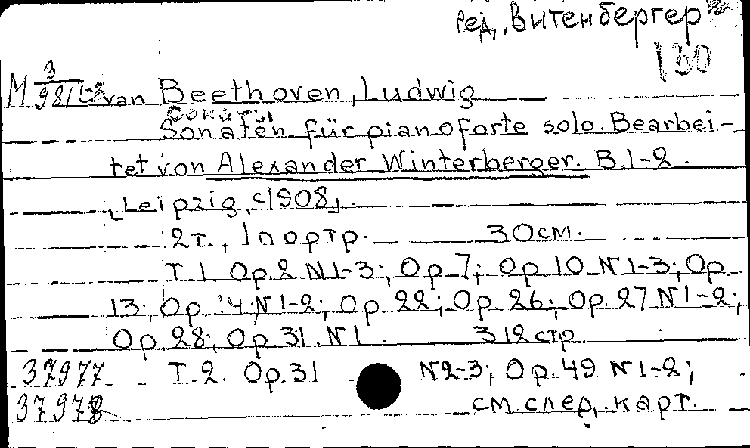 ред. Витенбергер
130
М 3/981 1-2 van Beethoven, Ludwig
Сонаты
Sonaten für pianoforte solo. Bearbei-
tet von Alexander Winterberger. B. 1-2.
Leipzig, c1908.
2т., 1 портр. 30см.
Т. 1 Op. 2 N 1-3; Op. 7; Op. 10 N 1-3; Op.
13; Op. 14 N 1-2; Op. 22; Op. 26; Op. 27 N 1-2;
Op. 28; Op. 31 N 1. 312 стр
37977 Т. 2. Op. 31 N 2-3; Op. 49 N 1-2;
37978 см. след. карт.